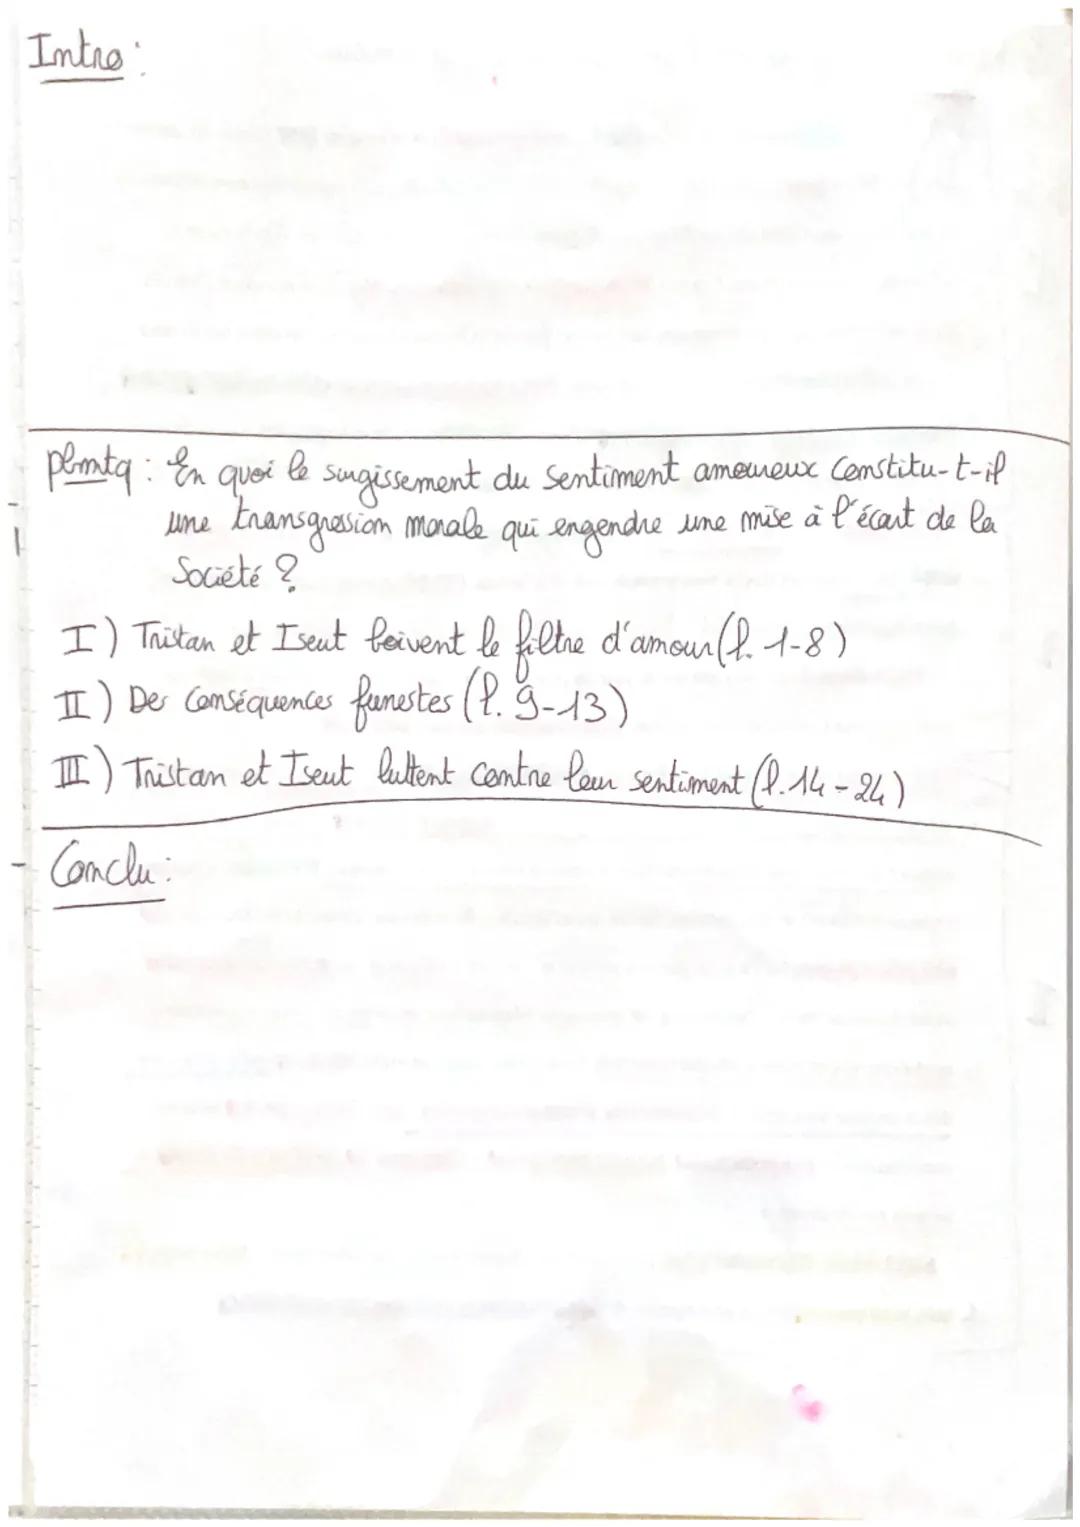 Intro :
pbmtq : En quoi le surgissement du sentiment amoureux constitu-t-il
une transgression morale qui engendre une mise à l'écart de la
Société ?
I) Tristan et Iseut boivent le filtre d'amour (l. 1-8)
II) Des conséquences funestes (l. 9-13)
III) Tristan et Iseut luttent contre leur sentiment (l. 14-24)
Conclu :